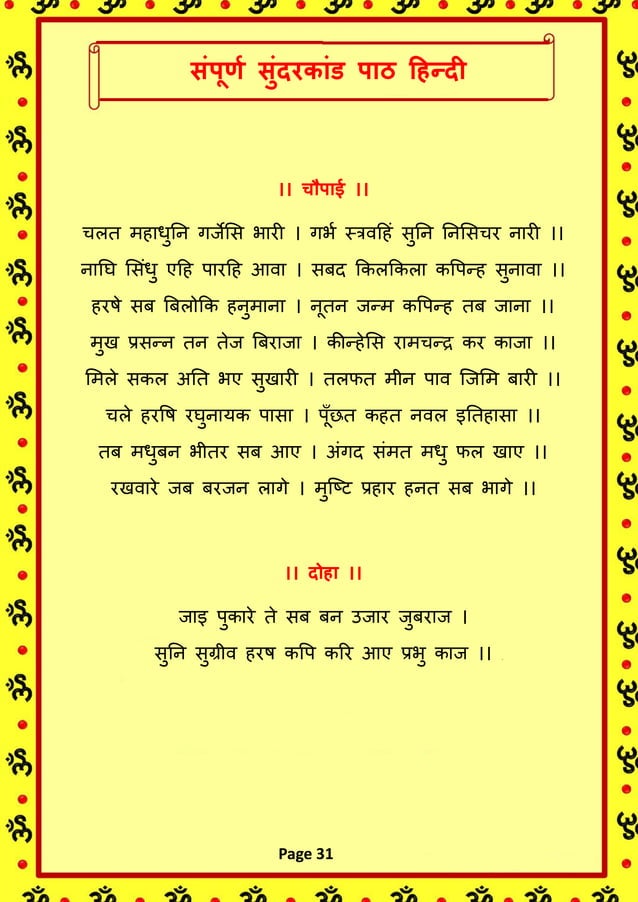 संपूर्ण सुंदरकांड पाठ हिन्दी
।। चौपाई ।।
चलत महाधुनि गर्जेसि भारी । गर्भ स्त्रवहिं सुनि निसिचर नारी ।।
नाघि सिंधु एहि पारहि आवा । सबद किलकिला कपिन्ह सुनावा ।।
हरषे सब बिलोकि हनुमाना । नूतन जन्म कपिन्ह तब जाना ।।
मुख प्रसन्न तन तेज बिराजा । कीन्हेसि रामचन्द्र कर काजा ।।
मिले सकल अति भए सुखारी । तलफत मीन पाव जिमि बारी ।।
चले हरषि रघुनायक पासा । पूँछत कहत नवल इतिहासा ।।
तब मधुबन भीतर सब आए । अंगद संमत मधु फल खाए ।।
रखवारे जब बरजन लागे । मुष्टि प्रहार हनत सब भागे ।।
।। दोहा ।।
जाइ पुकारे ते सब बन उजार जुबराज ।
सुनि सुग्रीव हरष कपि करि आए प्रभु काज ।।
Page 31